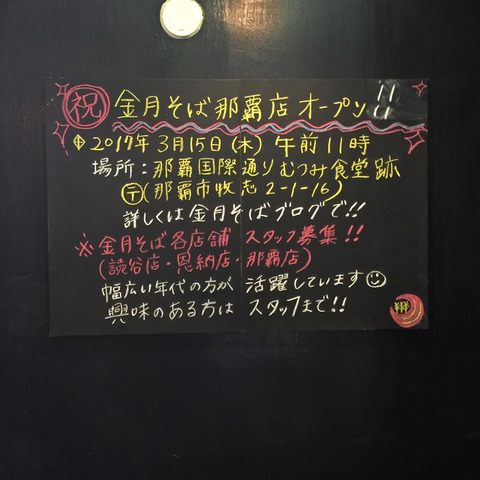 祝 金月そば那覇店オープン!!
2017年3月15日(木)午前11時
場所:那覇国際通りむつみ食堂跡
〒(那覇市牧志2-1-16)
詳しくは金月そばブログで!!
※金月そば各店舗 スタッフ募集!!
(読谷店・恩納店・那覇店)
幅広い年代の方が 活躍しています
興味のある方は スタッフまで!!